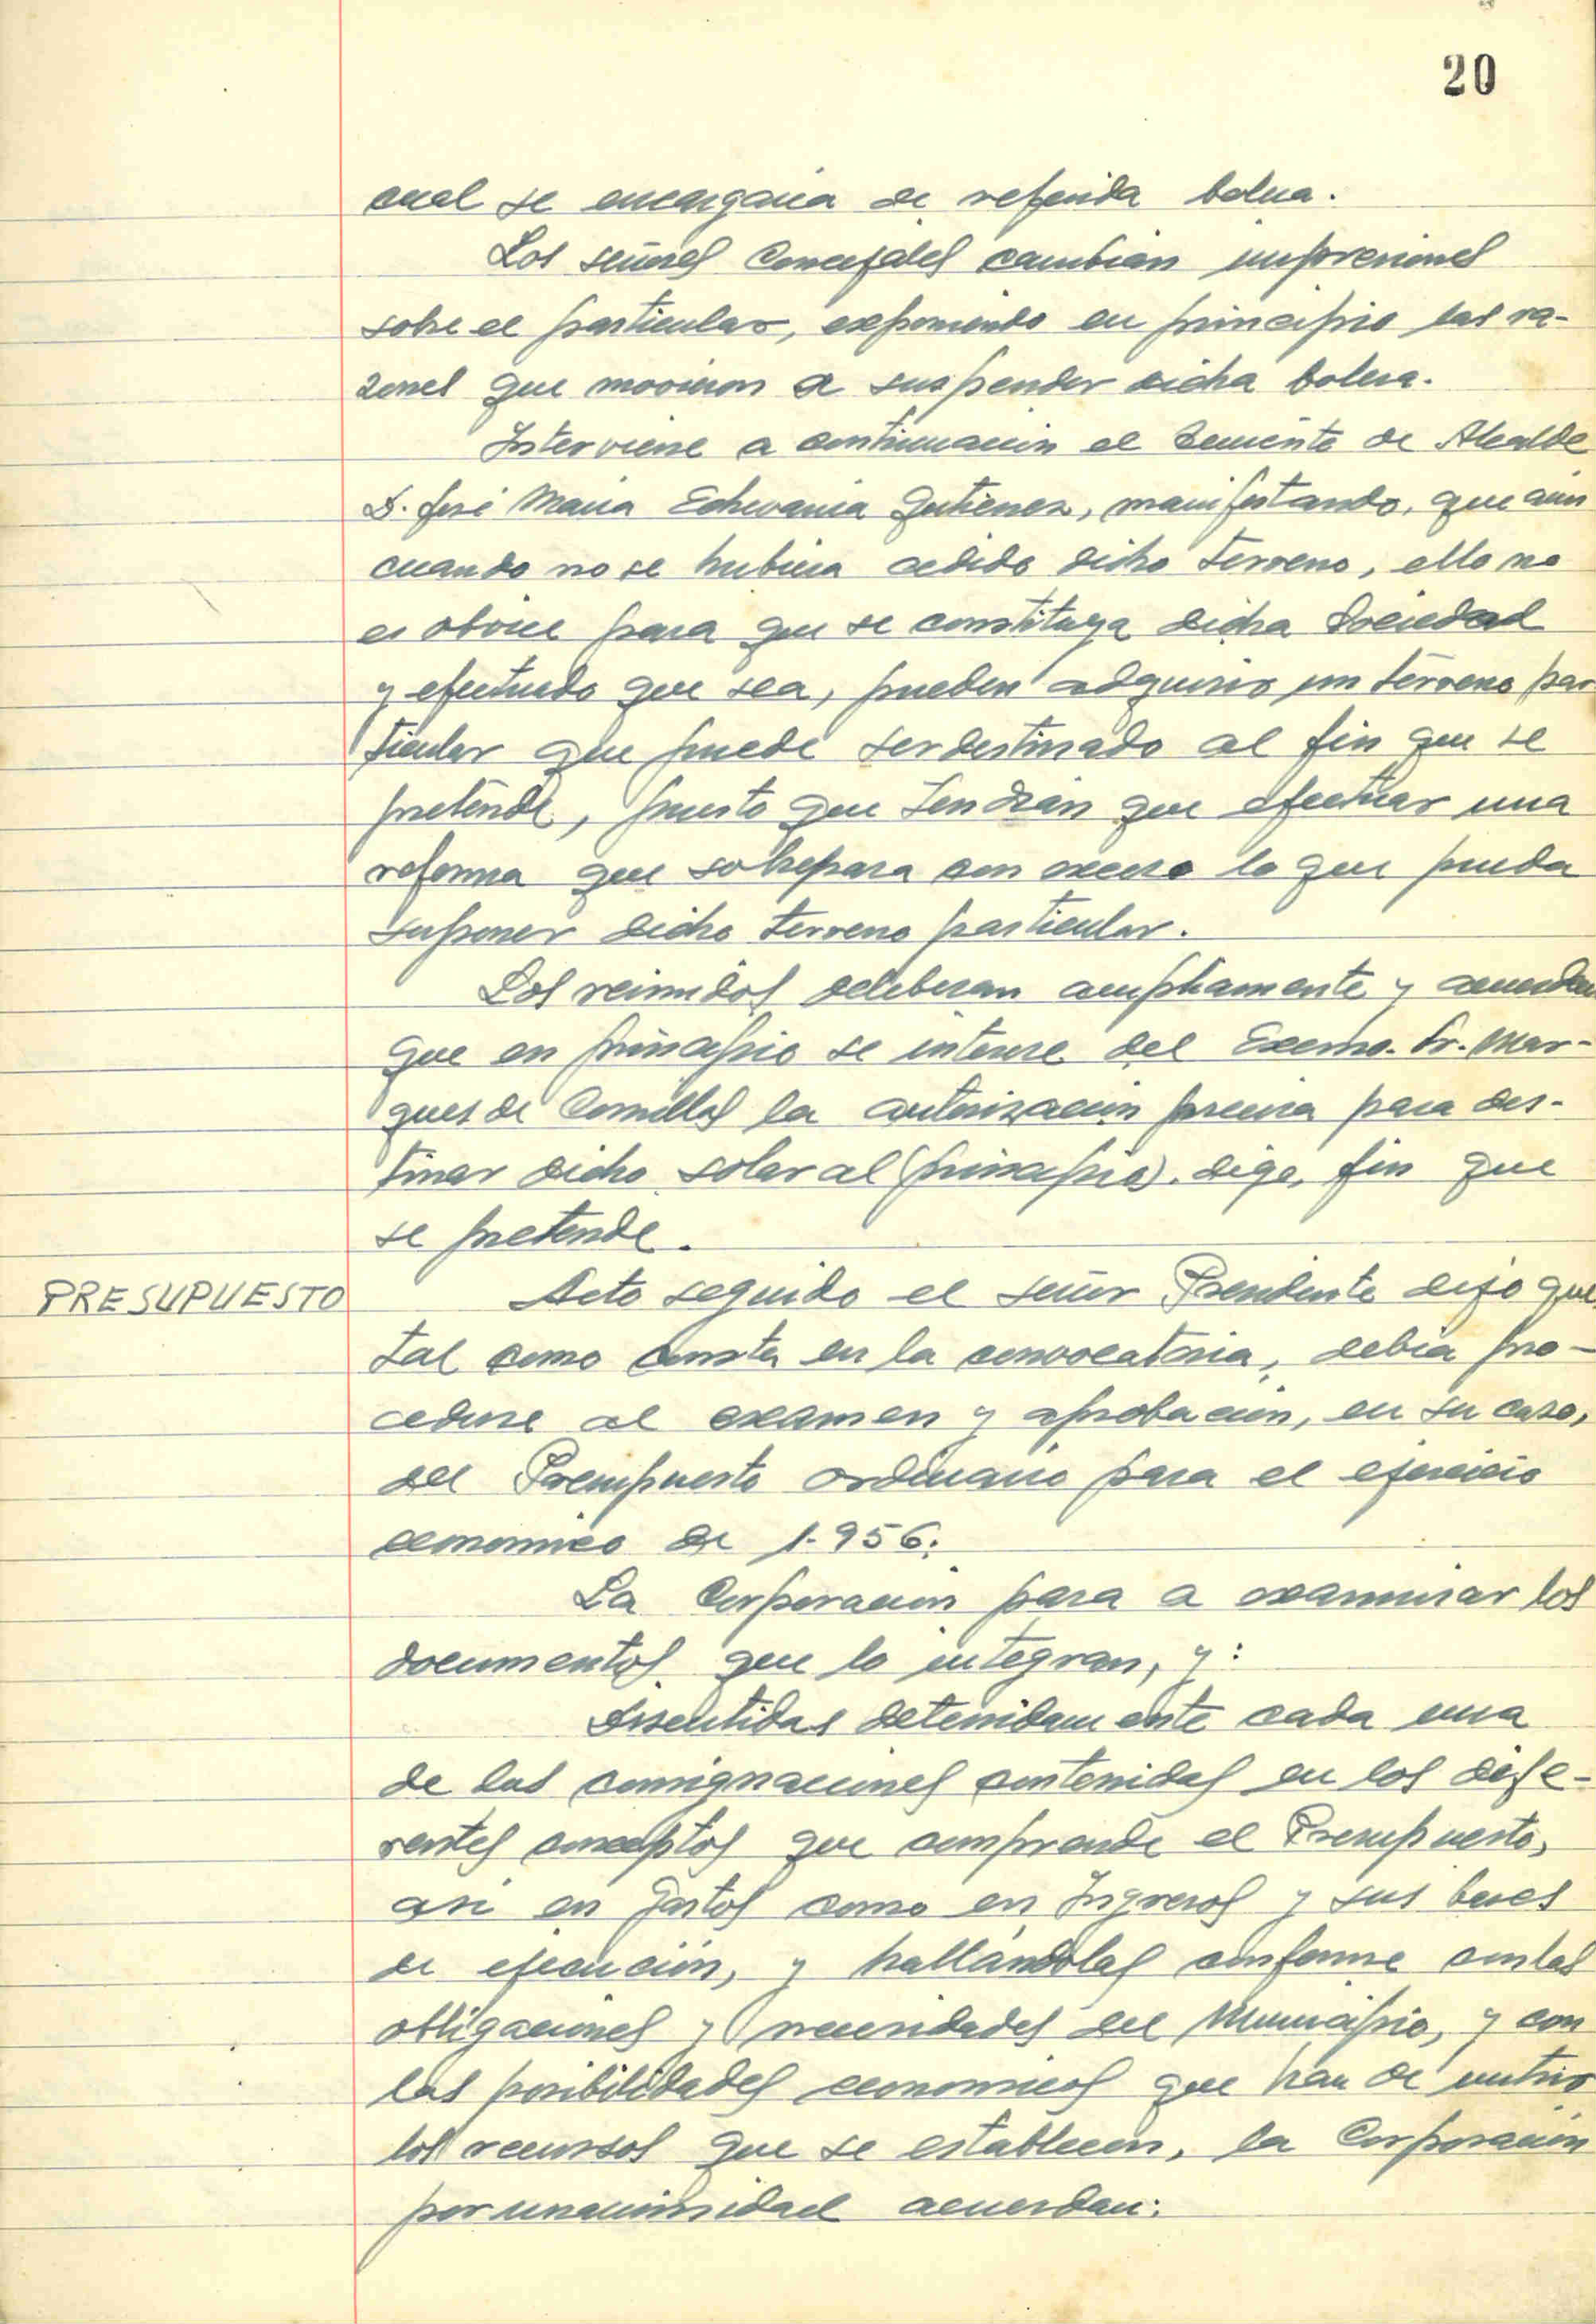 20
cual se encargaria de referida bolera.
Los señores Concejales cambian impresiones
sobre el particular, exponiendo en principio las ra-
zones que movieron a suspender dicha bolera.
Interviene a continuación el Teniente de Alcalde
D. José Maria Echevarria Gutierrez, manifestando, que aún
cuando no se hubiera cedido dicho terreno, ello no
es obice para que se constituya dicha Sociedad
y efectuado que sea, pueden adquirir un terreno par
ticular que puede ser destinado al fin que se
pretende, puesto que tendrán que efectuar una
reforma que sobrepasa con exceso lo que pueda
suponer dicho terreno particular.
Los reunidos deliberan ampliamente y acuerdan
que en principio se interese del Excmo. Sr. Mar-
ques de Comillas la autorización precisa para des-
tinar dicho solar al (principio). digo, fin que
se pretende.
PRESUPUESTO
Acto seguido el señor Presidente dijo que
tal como consta en la convocatoria, debia pro-
cederse al examen y aprobación, en su caso,
del Presupuesto ordinario para el ejercicio
economico de 1.956.
La Corporación pasa a examinar los
documentos que lo integran, y:
Discutidas detenidamente cada una
de las consignaciones contenidas en los dife-
rentes conceptos que comprende el Presupuesto,
asi en Gastos como en Ingresos y sus bases
de ejecución, y hallándolas conforme con las
obligaciones y necesidades del Municipio, y con
las posibilidades economicas que han de nutrir
los recursos que se establecen, la Corporación
por unanimidad acuerdan: